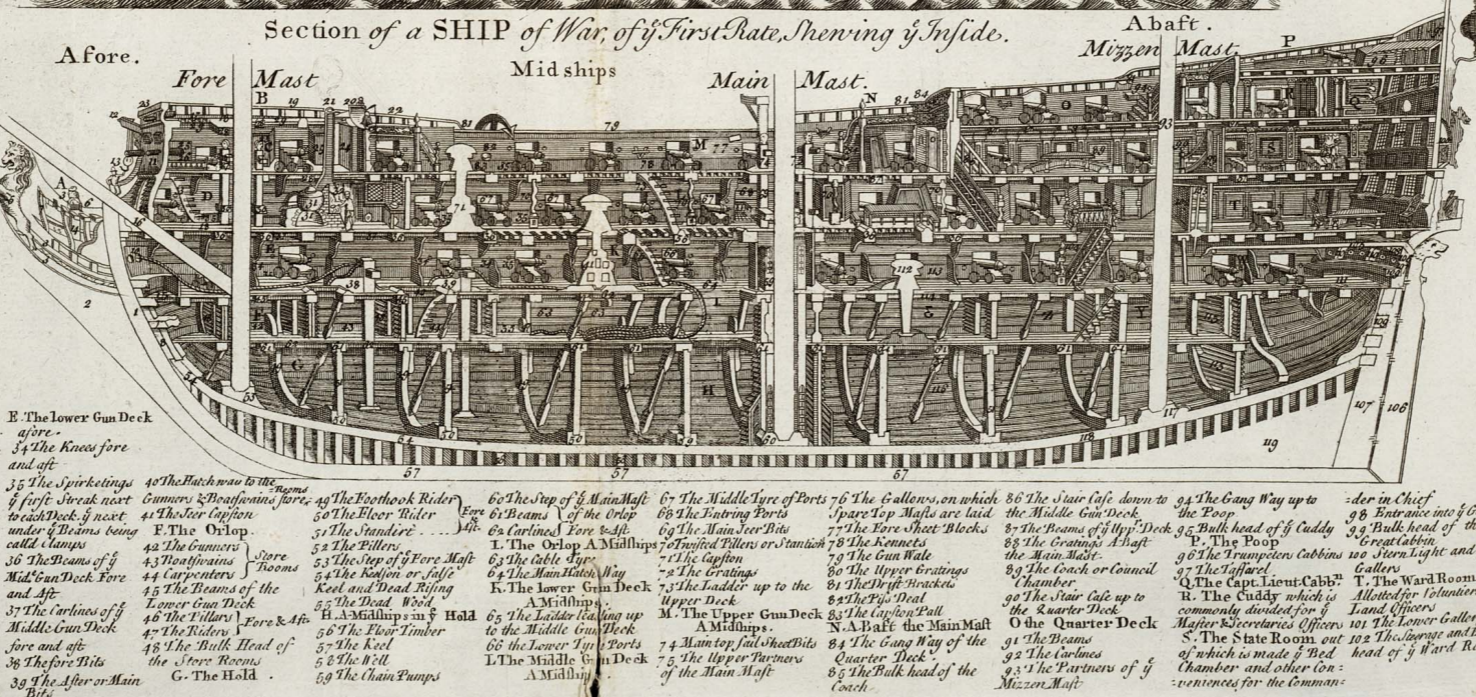 Section of a SHIP of War, of yͤ First Rate, Shewing yͤ Inside.
Abaft.
Afore.
Fore Mast
Midships
Main Mast.
Mizzen Mast.
E. The lower Gun Deck
afore.
34 The Knees fore
and aft
35 The Spirketings
yͤ first Streak next
to each Deck. yͤ next
under yͤ Beams being
call'd Clamps
36 The Beams of yͤ
Midͤ Gun Deck Fore
and Aft
37 The Carlines of yͤ
Middle Gun Deck
fore and aft
38 The fore Bits
39 The After or Main
Bits
40 The Hatch way to the
Gunners & Boatswains store=
=Rooms
41 The Jeer Capston
F. The Orlop.
42 The Gunners
43 Boatswains
44 Carpenters
Store
Rooms
45 The Beams of the
Lower Gun Deck
46 The Pillars
47 The Riders
Fore & Aft
48 The Bulk Head of
the Store Rooms
G. The Hold.
49 The Foothook Rider
50 The Floor Rider
51 The Standert
Fore
& Aft.
52 The Pillers
53 The Step of yͤ Fore Mast
54 The Keelson or false
Keel and Dead Rising
55 The Dead Wood
H. A Midships in yͤ Hold
56 The Floor Timber
57 The Keel
58 The Well
59 The Chain Pumps
60 The Step of yͤ Main Mast
61 Beams
62 Carlines
of the Orlop
Fore & Aft
I. The Orlop A Midships
63 The Cable Tyr
64 The Main Hatch Way
K. The lower Gun Deck
A Midships.
65 The Ladder leading up
to the Middle Gun Deck
66 the Lower Tyre Ports
L. The Middle Gun Deck
A Midships
67 The Middle Tyre of Ports
68 The Entring Ports
69 The Main Jeer Bits
70 Twisted Pillers or Stantion
71 The Capston
72 The Gratings
73 The Ladder up to the
Upper Deck
M. The Upper Gun Deck
A Midships.
74 Main top sail Sheet Bits
75 The Upper Partners
of the Main Mast
76 The Gallows, on which
Spare Top Masts are laid
77 The Fore Sheet Blocks
78 The Kennets
79 The Gun Wale
80 The Upper Gratings
81 The Drift Brackets
82 The Piss Deal
83 The Capston Pall
N. A Baft the Main Mast
84 The Gang Way of the
Quarter Deck.
85 The Bulk head of the
Coach
86 The Stair Case down to
the Middle Gun Deck
87 The Beams of yͤ Uppͬ Deck
88 The Gratings A Baft
the Main Mast.
89 The Coach or Council
Chamber
90 The Stair Case up to
the Quarter Deck
O the Quarter Deck
91 The Beams
92 The Carlines
93 The Partners of yͤ
Mizzen Mast
94 The Gang Way up to
the Poop
95 Bulk head of yͤ Cuddy
P. The Poop
96 The Trumpeters Cabbins
97 The Taffarel
Q. The Capt. Lieut. Cabbⁿ
R. The Cuddy which is
commonly divided for yͤ
Master & Secretaries Officers
S. The State Room out
of which is made yͤ Bed
Chamber and other Con=
=veniences for the Comman=
=der in Chief
98 Entrance into yͤ G
99 Bulk head of the
Great Cabbin
100 Stern Light and
Gallers
T. The Ward Room
Allotted for Voluntier
Land Officers
101 The Lower Galler
102 The Steerage and
head of yͤ Ward R